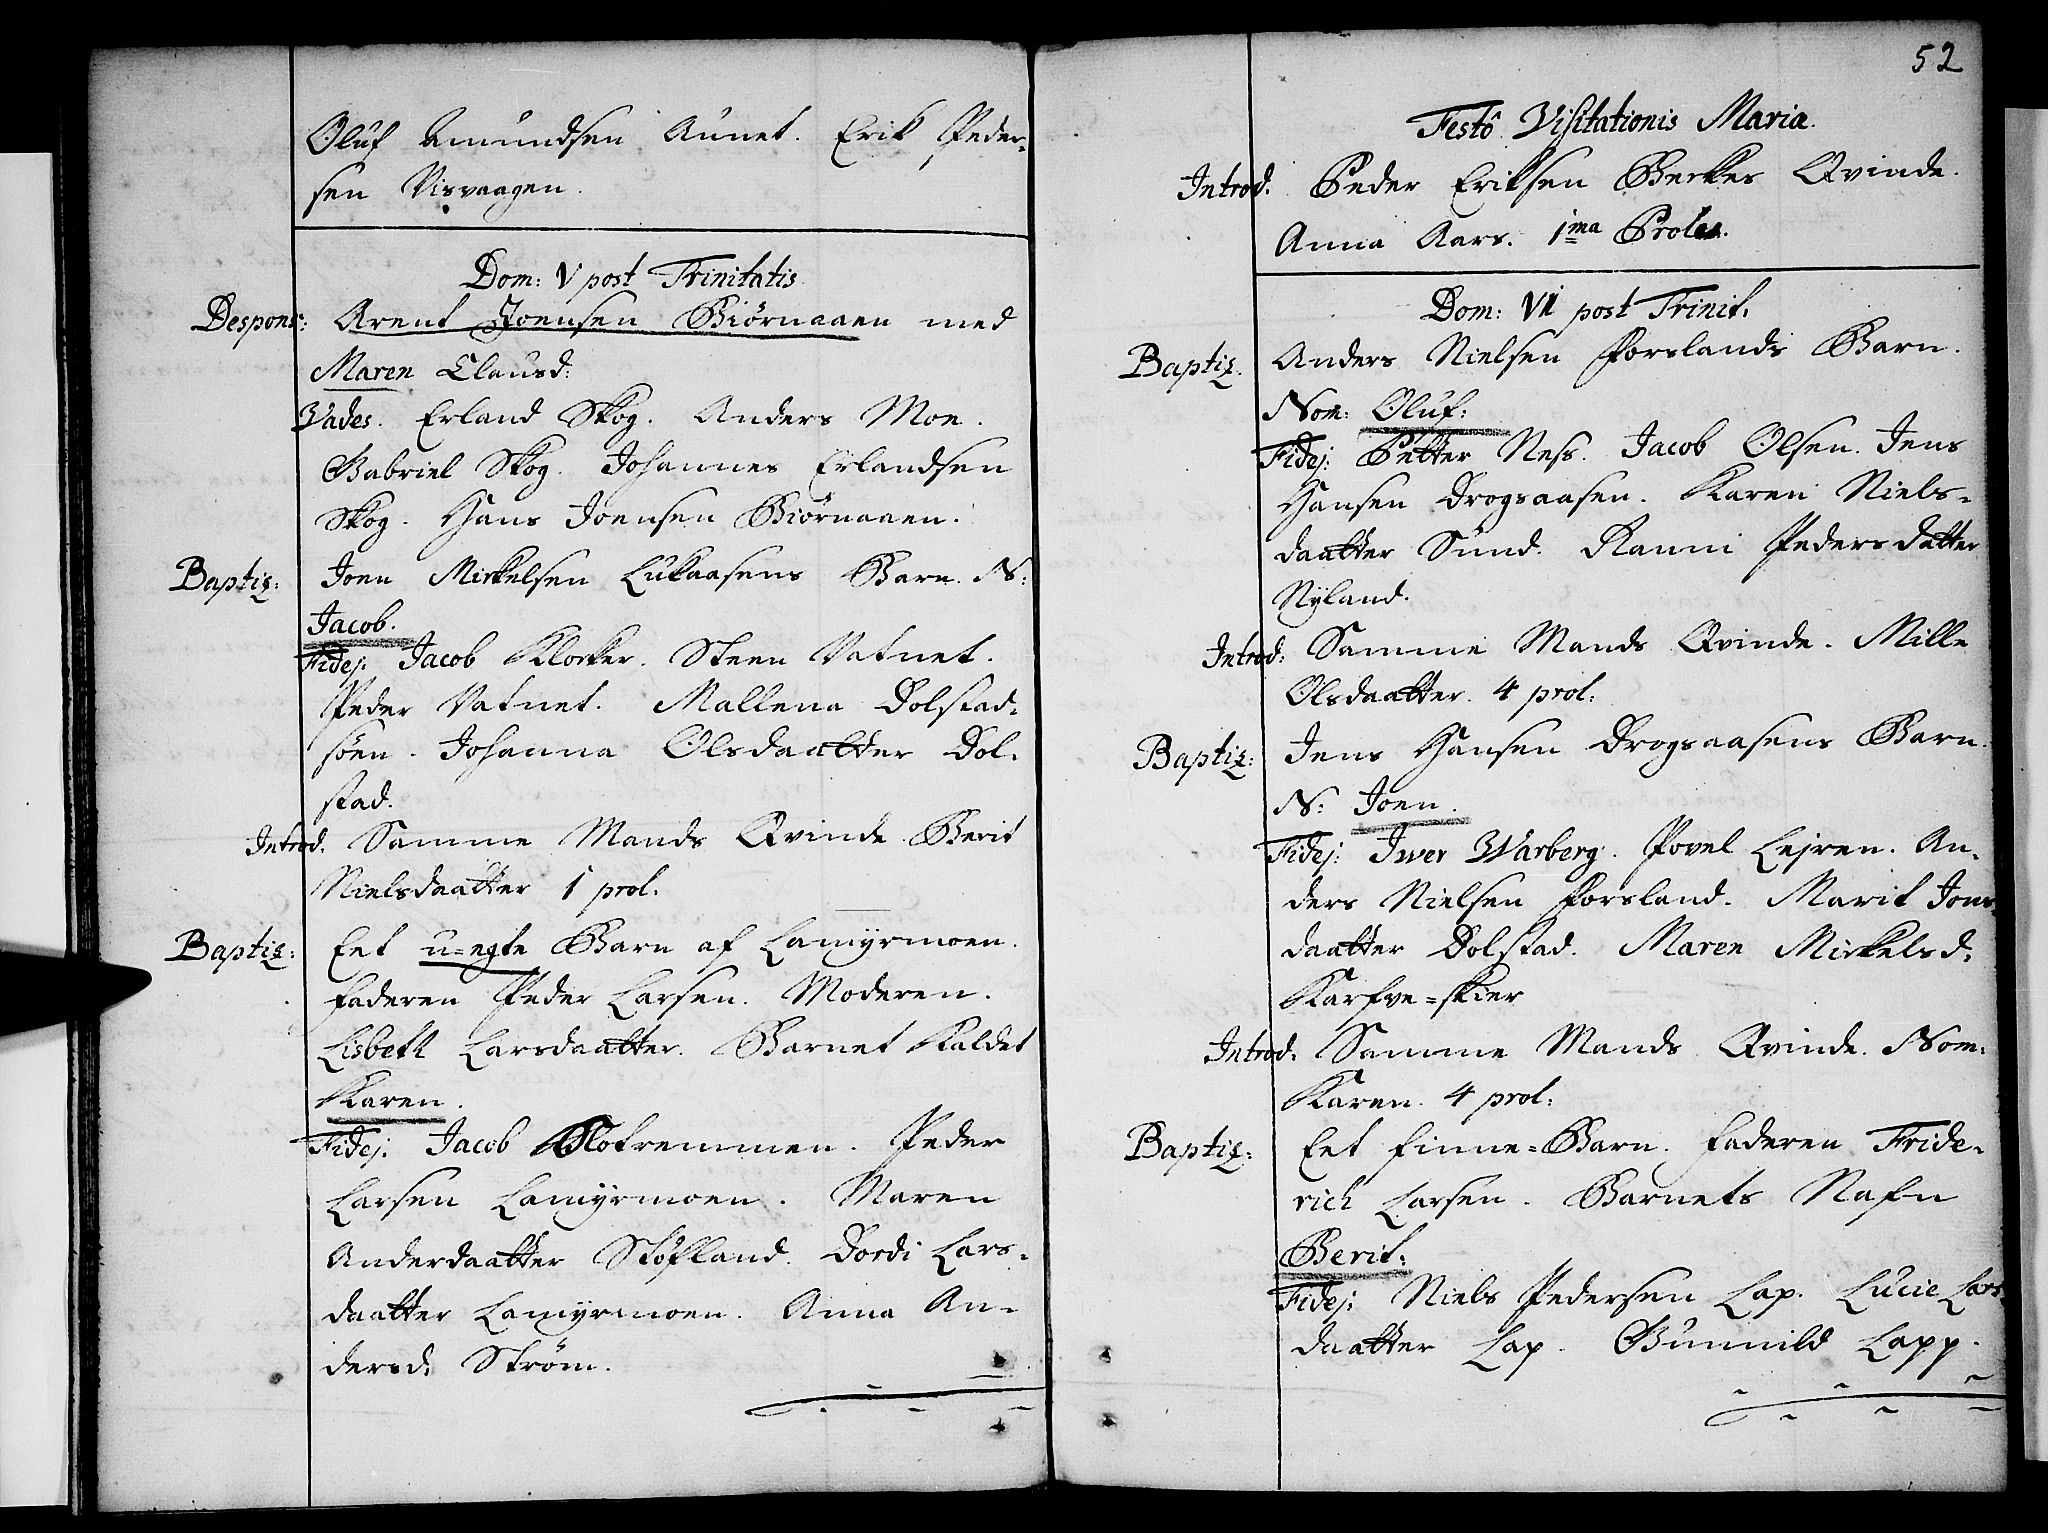 Oluf Amundsen Aunet. Erik Peder-
sen Visvaagen.
Dom: V post Trinitatis
Despons: Arent Joensen Biørnaaen med
Maren Clausd:
Vades. Erland Skog. Anders Moe.
Gabriel Skog. Johannes Erlandsen
Skog. Hans Joensen Biørnaaen.
Baptiz: Joen Mickelsen Lukaasens Barn. N:
Jacob.
Fidej: Jacob Klocker. Steen Vatnet.
Peder Vatnet. Mallena Dolstad-
søen. Johanna Olsdaatter Dol-
stad.
Introd. Samme Mands Qvinde Berit
Nielsdaatter 1 prol.
Baptiz: Eet u-egte Barn af Lamyrmoen.
Faderen Peder Larsen. Moderen.
Lisbeth Larsdaatter. Barnet Kaldet
Karen.
Fidej. Jacob Klofremmen. Peder
Larsen Lamyrmoen. Maren
Anderdaatter Støfland. Dordi Lars-
daatter Lamyrmoen. Anna An-
dersd: Strøm.
52
Festô Visitationis Mariæ.
Introd. Peder Eriksen Beckes Qvinde.
Anna Aars. 1ma Proles.
Dom: VI post Trinit.
Baptiz. Anders Nielsen Forslands Barn.
Nom: Oluf:
Fidej: Petter Ness. Jacob Olsen. Jens
Hansen Drogsaasen. Karen Niels-
daatter Sund. Ranni Pedersdatter
Nyland.
Introd: Samme Mands Qvinde. Mille
Olsdaatter. 4 prol:
Baptiz: Jens Hansen Drogsaasens Barn.
N: Joen.
Fidej: Iwer Warberg. Povel Lejren. An-
ders Nielsen Forsland. Marit Jons-
daatter Dolstad. Maren Mickelsd.
Karfve-skier
Introd. Samme Mands Qvinde. Nom:
Karen. 4 prol:
Baptiz: Eet Finne-Barn. Faderen Fride-
rich Larsen. Barnets Nafn
Berit:
Fidej: Niels Pedersen Lap. Lucie Lars-
daatter Lap. Gunnild Lapp.